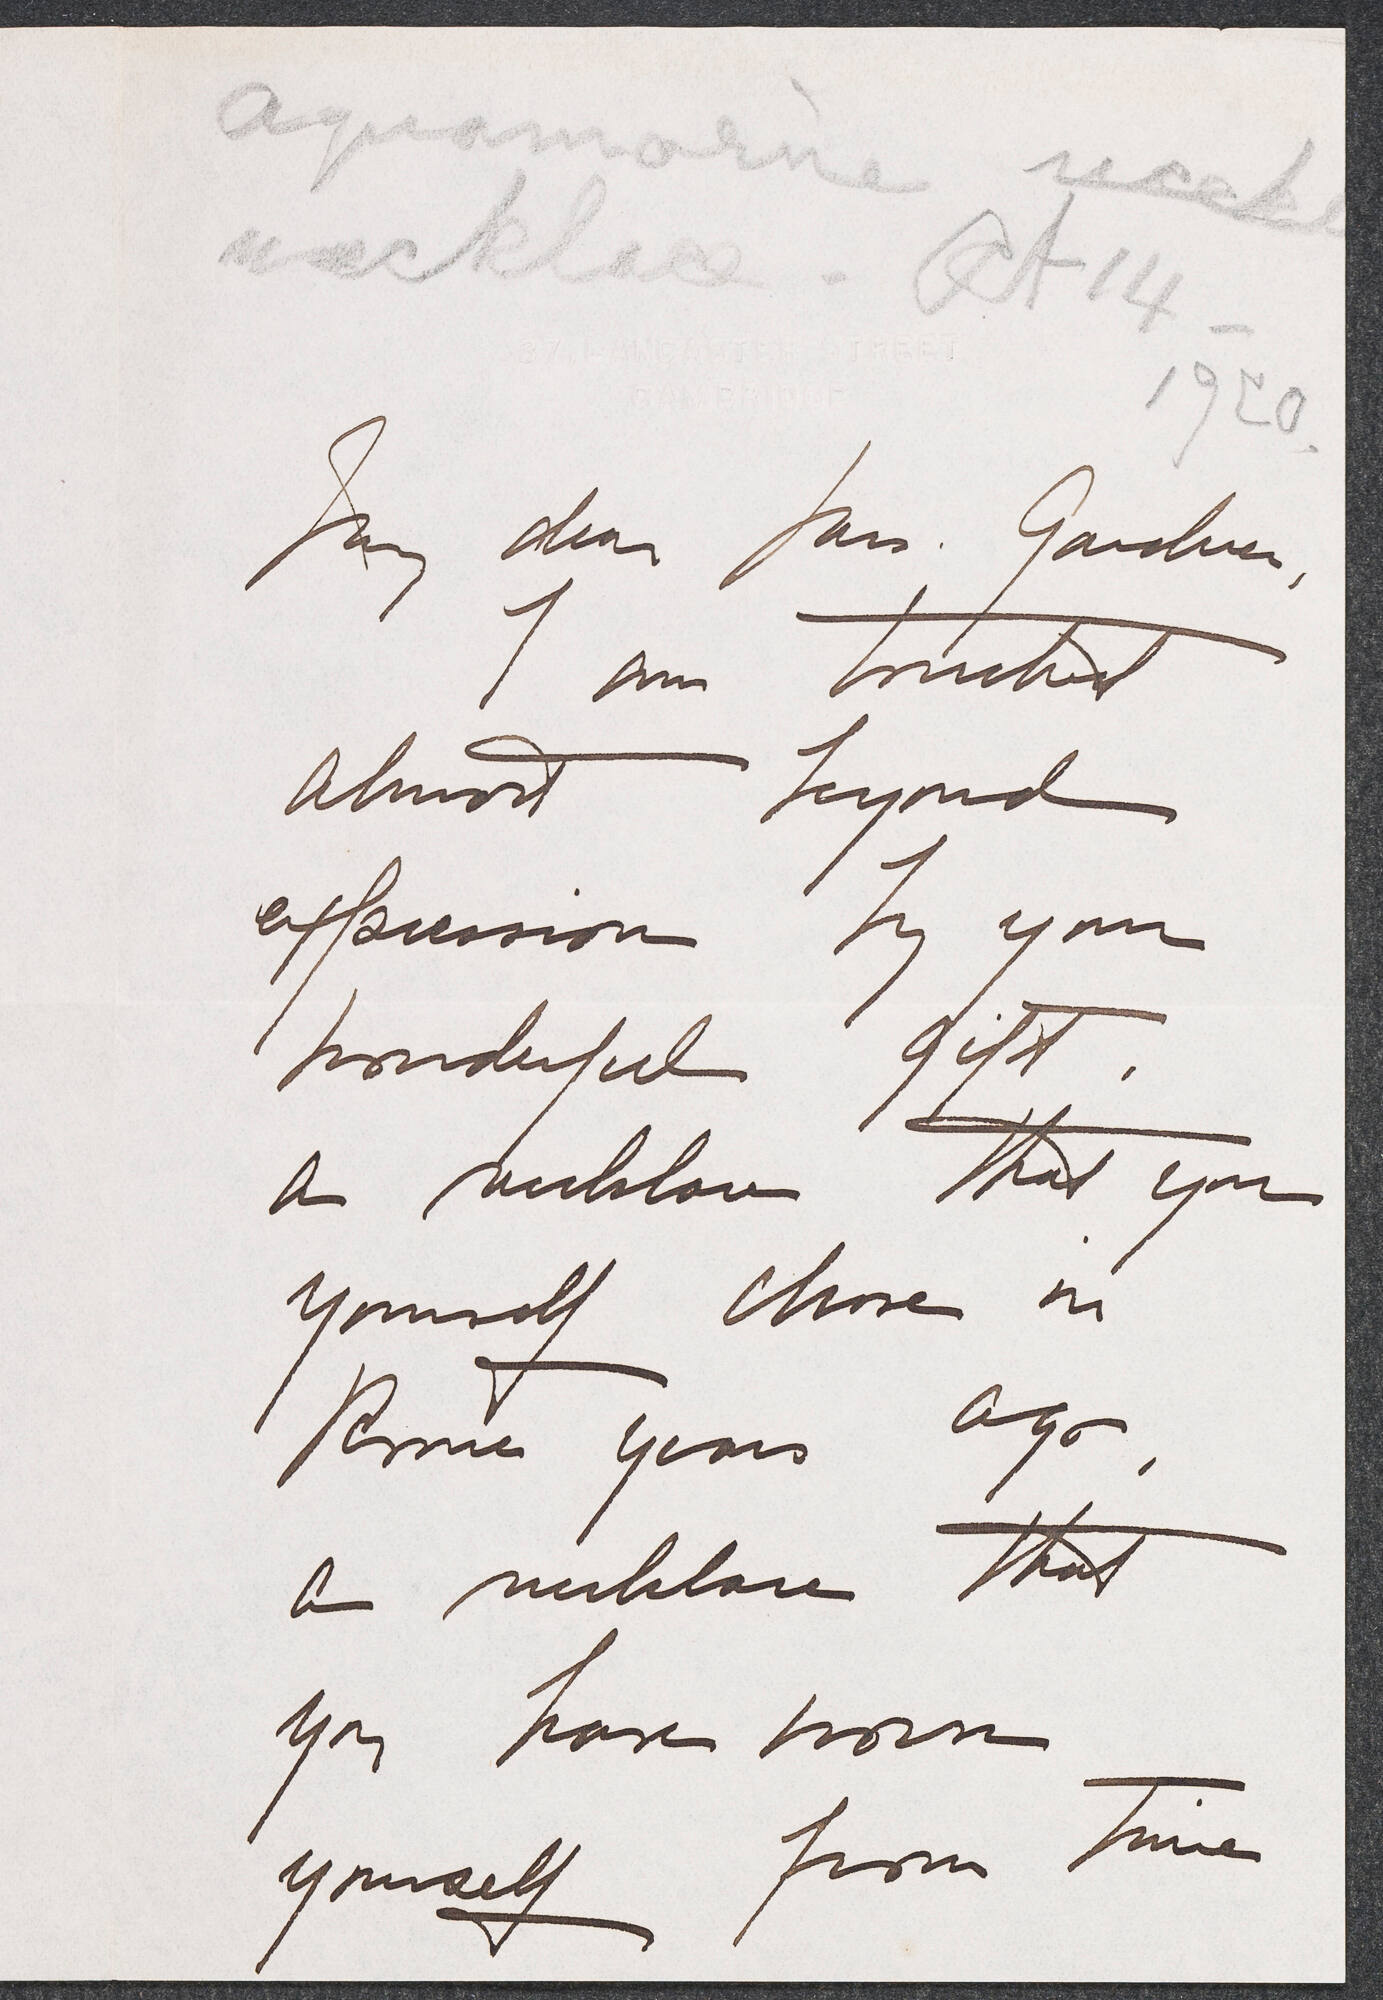 aquamarine neckl
necklace - Oct 14 -
1920.
87, LANCASTER STREET
CAMBRIDGE
My dear Mrs. Gardner,
I am touched
almost beyond
expression by your
wonderful gift,
a necklace that you
yourself chose in
Rome years ago,
a necklace that
you have worn
yourself from time